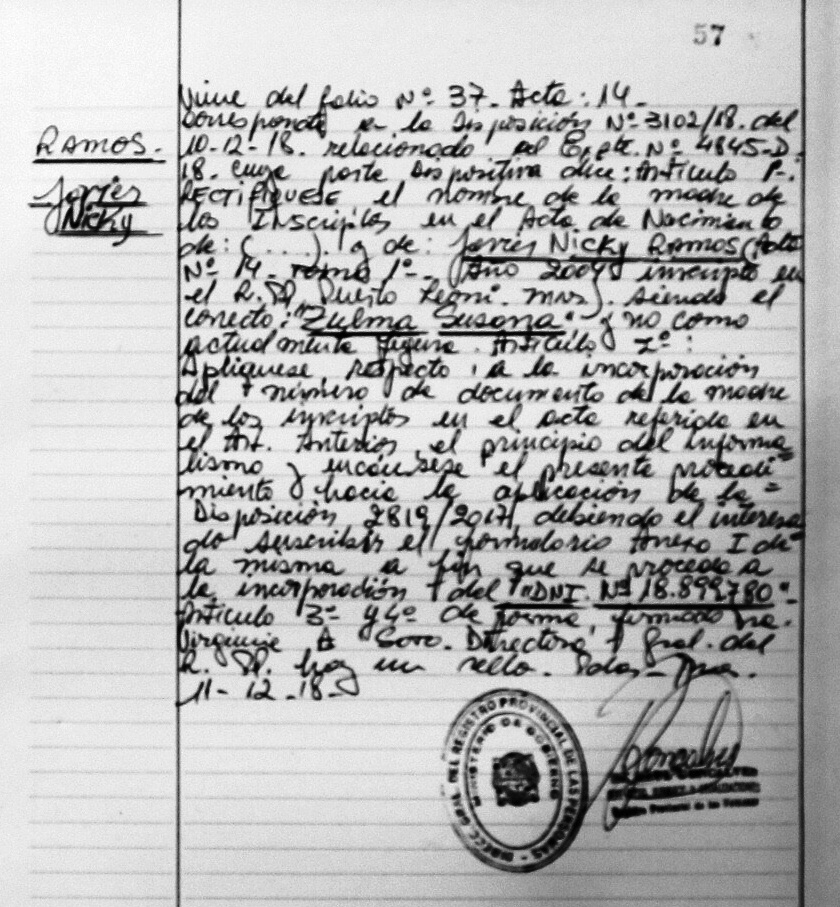 57
RAMOS.-
Javier
Nicky
Viene del folio Nº 37. Acta: 14.-
Corresponde a la Disposición Nº 3102/18. del
10-12-18. relacionado al Expte. Nº 4845-D
18. cuya parte Dispositiva dice: Artículo 1º-:
RECTIFIQUESE el nombre de la madre de
los Inscriptos en el Acta de Nacimiento
de: (....). y de: Javier Nicky Ramos (Acta
Nº 14. Tomo 1º-. Año 2009) inscripto en
el R. PP. Puerto Leoni. Mnes). siendo el
correcto: "Zulma Susana" y no como
actualmente figura. Artículo 2º:
Apliquese respecto a la incorporación
del número de documento de la madre
de los inscriptos en el acta referida en
el Art. Anterior, el principio del informa
lismo y encáusese el presente procedi=
miento hacia la aplicación de la =
Disposición 2819/2017, debiendo el interesa
do suscribir el formulario Anexo I de
la misma a fin que se proceda a
la incorporación del "DNI. Nº 18.899.780".
Artículo 3º y 4º de forma, firmado
Virginia A Directora Gral. del
R. PP. hay un sello. Posadas
11-12-18.-
DIRECC. GRAL. DEL REGISTRO PROVINCIAL DE LAS PERSONAS
MINISTERIO DE GOBIERNO